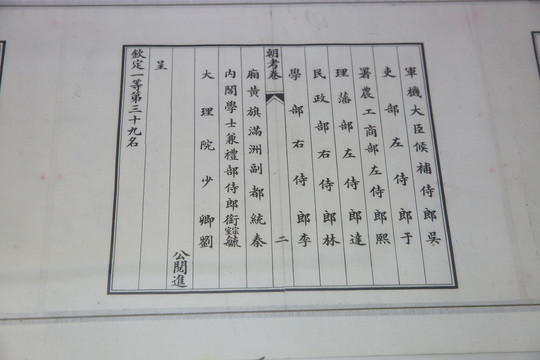 軍機大臣候補侍郎吳
吏部左侍郎于
署農工商部左侍郎熙
理藩部左侍郎達
民政部右侍郎林
學部右侍郎李
朝考卷 二
廂黃旗滿洲副都統秦
內閣學士兼禮部侍郎銜宗室毓
大理院少卿劉
公閱進
呈
欽定一等第三十九名